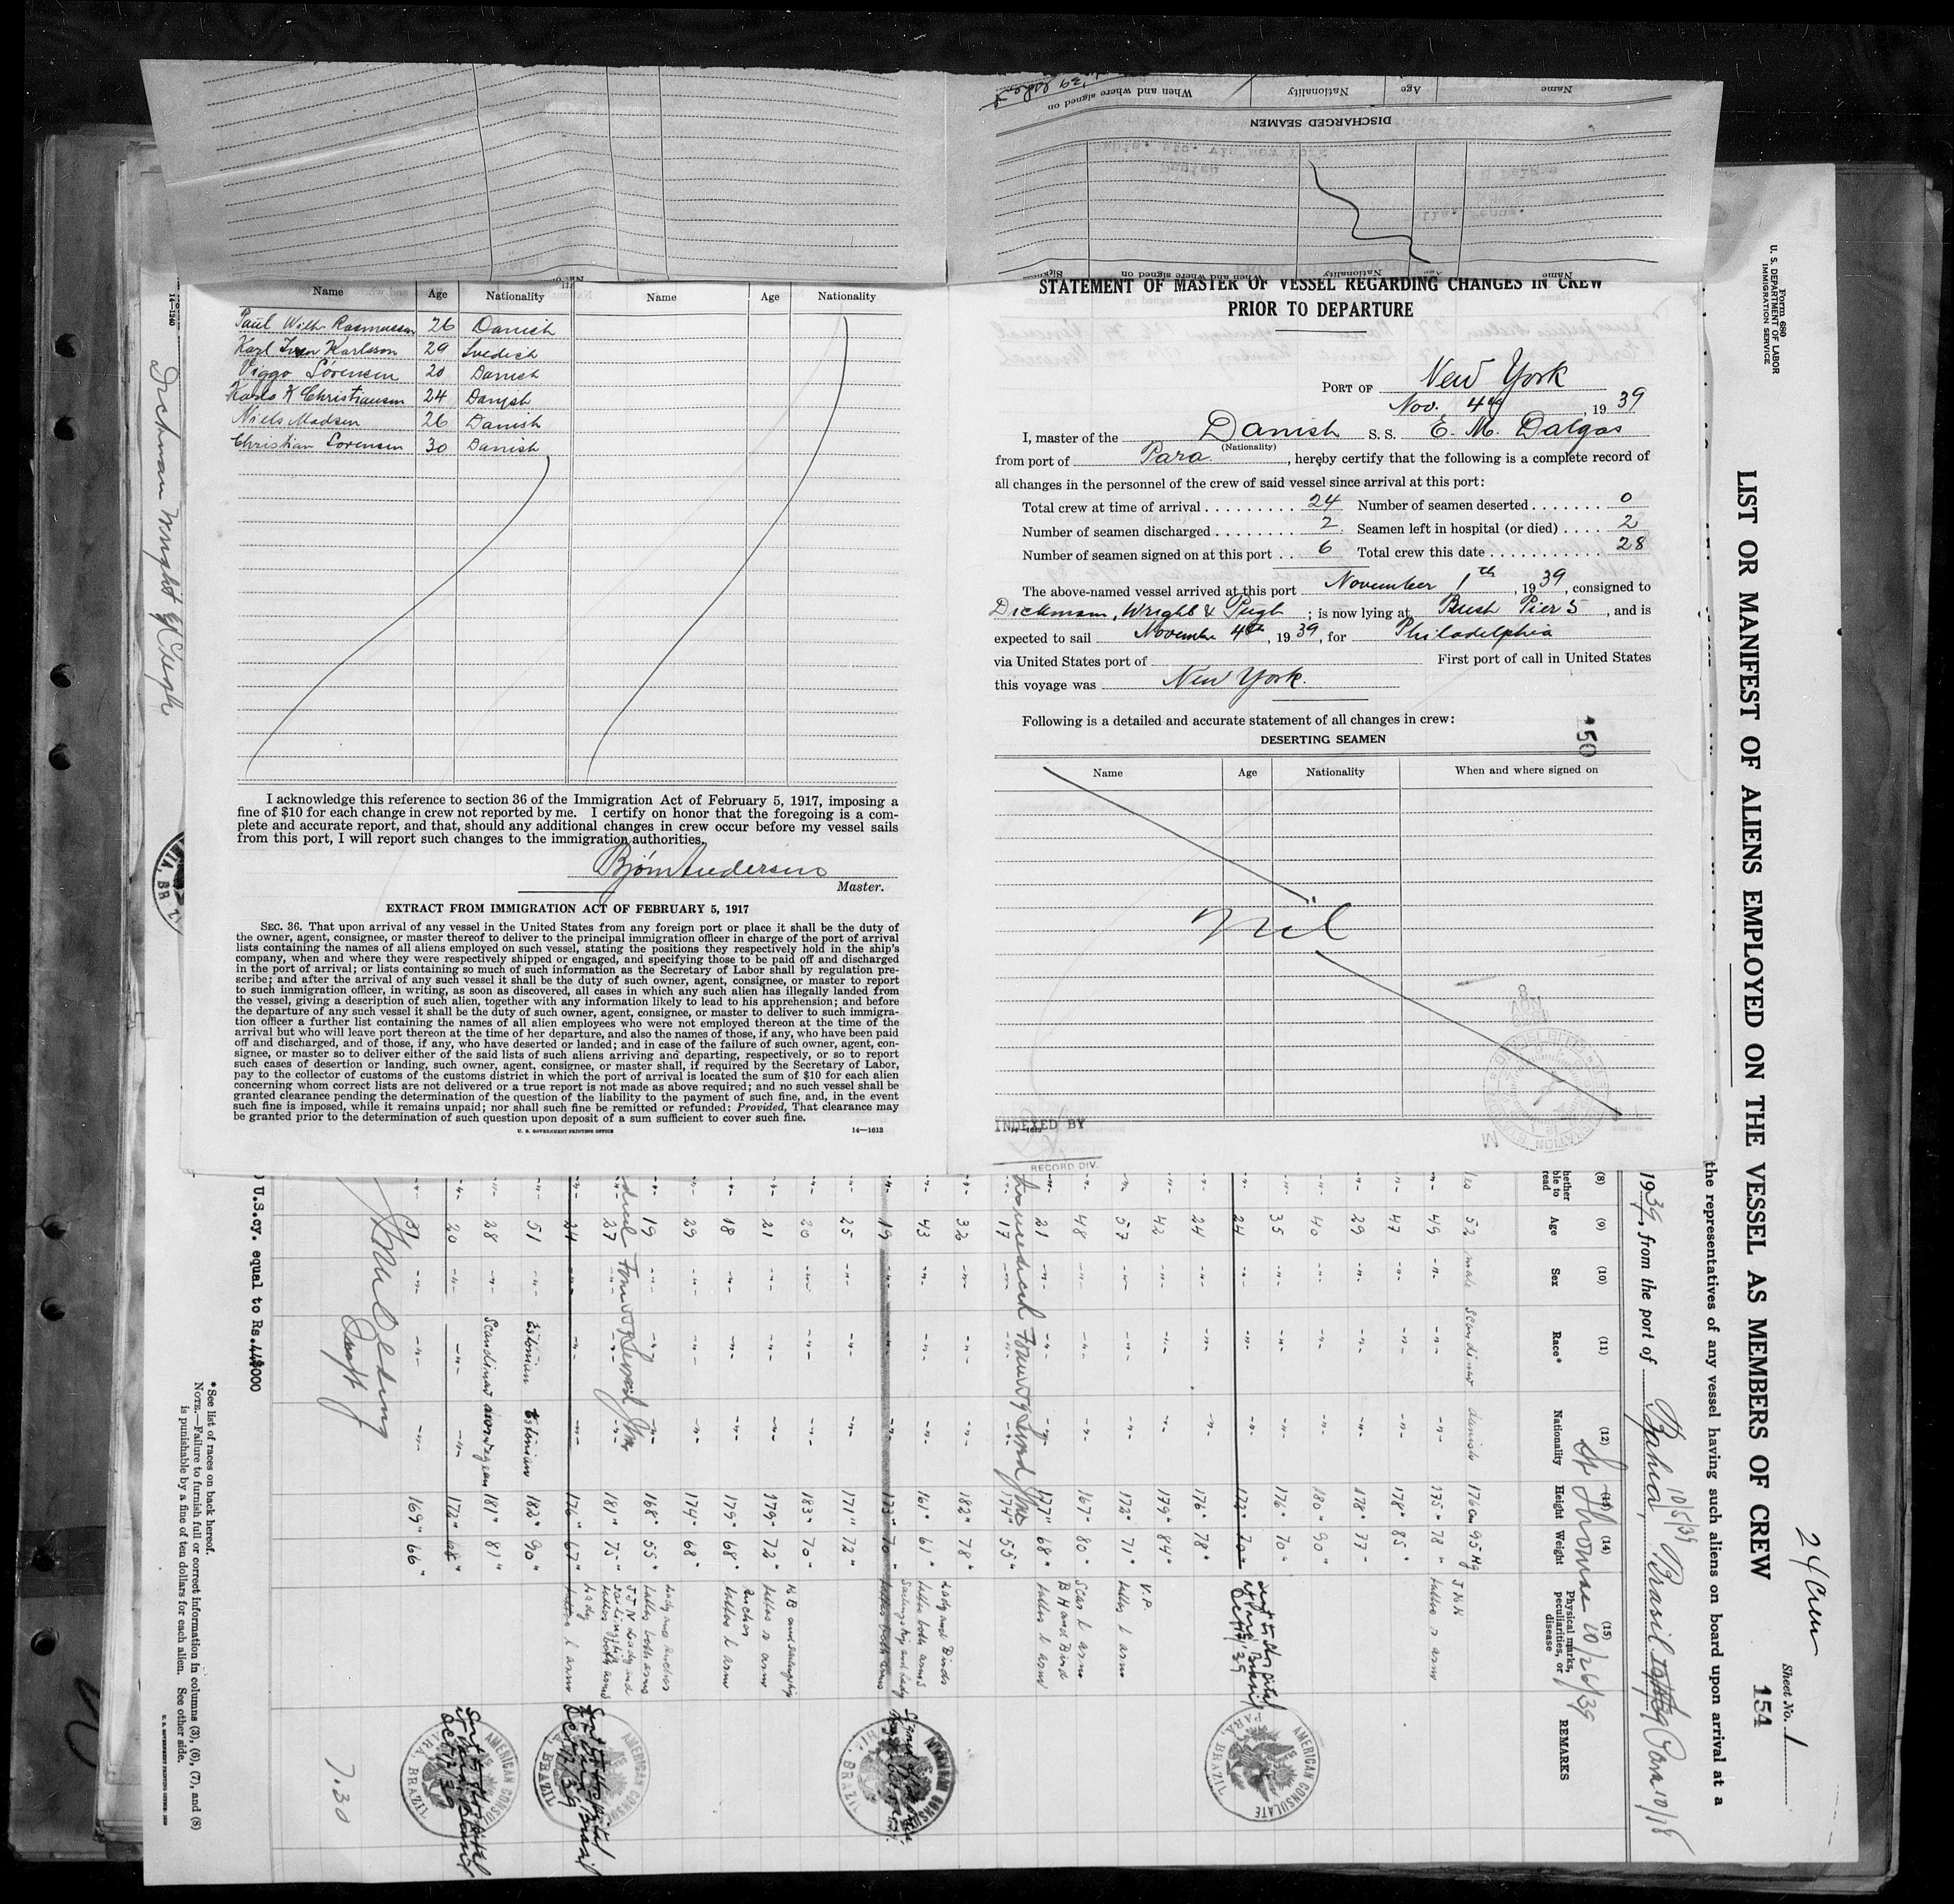 When and where signed on
Nationality
Age
Name
DISCHARGED SEAMEN
Name Age Nationality Name Age Nationality
Paul Wilh Rasmussen 26 Danish
Karl Ivan Karlsson 29 Svedich
Viggo Sörensen 20 Danish
Karlo K Christiansen 24 Danish
Niels Madsen 26 Danish
Christian Sorensen 30 Danish
I acknowledge this reference to section 36 of the Immigration Act of February 5, 1917, imposing a
fine of $10 for each change in crew not reported by me. I certify on honor that the foregoing is a com-
plete and accurate report, and that, should any additional changes in crew occur before my vessel sails
from this port, I will report such changes to the immigration authorities.
Bjørn Andersen
Master.
EXTRACT FROM IMMIGRATION ACT OF FEBRUARY 5, 1917
SEC. 36. That upon arrival of any vessel in the United States from any foreign port or place it shall be the duty of
the owner, agent, consignee, or master thereof to deliver to the principal immigration officer in charge of the port of arrival
lists containing the names of all aliens employed on such vessel, stating the positions they respectively hold in the ship's
company, when and where they were respectively shipped or engaged, and specifying those to be paid off and discharged
in the port of arrival; or lists containing so much of such information as the Secretary of Labor shall by regulation pre-
scribe; and after the arrival of any such vessel it shall be the duty of such owner, agent, consignee, or master to report
to such immigration officer, in writing, as soon as discovered, all cases in which any such alien has illegally landed from
the vessel, giving a description of such alien, together with any information likely to lead to his apprehension; and before
the departure of any such vessel it shall be the duty of such owner, agent, consignee, or master to deliver to such immigra-
tion officer a further list containing the names of all alien employees who were not employed thereon at the time of the
arrival but who will leave port thereon at the time of her departure, and also the names of those, if any, who have been paid
off and discharged, and of those, if any, who have deserted or landed; and in case of the failure of such owner, agent, con-
signee, or master so to deliver either of the said lists of such aliens arriving and departing, respectively, or so to report
such cases of desertion or landing, such owner, agent, consignee, or master shall, if required by the Secretary of Labor,
pay to the collector of customs of the customs district in which the port of arrival is located the sum of $10 for each alien
concerning whom correct lists are not delivered or a true report is not made as above required; and no such vessel shall be
granted clearance pending the determination of the question of the liability to the payment of such fine, and, in the event
such fine is imposed, while it remains unpaid; nor shall such fine be remitted or refunded: Provided, That clearance may
be granted prior to the determination of such question upon deposit of a sum sufficient to cover such fine.
U. S. GOVERNMENT PRINTING OFFICE 14—1613
STATEMENT OF MASTER OF VESSEL REGARDING CHANGES IN CREW
PRIOR TO DEPARTURE
PORT OF New York
Nov. 4th, 1939
I, master of the Danish S. S. E. M. Dalgas
(Nationality)
from port of Para, hereby certify that the following is a complete record of
all changes in the personnel of the crew of said vessel since arrival at this port:
Total crew at time of arrival 24 Number of seamen deserted 0
Number of seamen discharged 2 Seamen left in hospital (or died) 2
Number of seamen signed on at this port 6 Total crew this date 28
The above-named vessel arrived at this port November 1th, 1939, consigned to
Dickmam, Wright & Pugh; is now lying at Bush Pier 5, and is
expected to sail November 4th, 1939, for Philadelphia
via United States port of First port of call in United States
this voyage was New York.
Following is a detailed and accurate statement of all changes in crew:
150
DESERTING SEAMEN
Name Age Nationality When and where signed on
Nil
INDEXED BY
RECORD DIV.
14—1240
Dickman Wright & Pugh
Form 680
U. S. DEPARTMENT OF LABOR
IMMIGRATION SERVICE
24 crew
Sheet No. 1
LIST OR MANIFEST OF ALIENS EMPLOYED ON THE VESSEL AS MEMBERS OF CREW 154
the representatives of any vessel having such aliens on board upon arrival at a
1939, from the port of Bahia, Brasil 10/5/39 Para 10/18
St Thomas 10/26/39
(8) (9) (10) (11) (12) (13) (14) (15)
Age Sex Race* Nationality Height Weight Physical marks, peculiarities, or disease REMARKS
yes 52 male Scandinav danish 176cm 95 Kg J K K
49 175" 78" tattos r arm
47 178" 85"
29 178" 77"
40 180" 90"
35 176" 70"
24 172" 70"
24 176" 78"
42 179" 84" V.P.
57 172" 71" tattos l arm
48 167" 80" Scar l arm
21 177" 68" tattos l arm
17 174" 55"
32 182" 78" Lady and Birds
43 161" 61" tattos both arms
19 173" 70" tattos both arms
25 171" 72"
20 183" 70"
21 179" 72" tattos r arm
18 179" 68" tattos l arm
29 174" 68"
19 168" 55" tattos both arms
27 181" 75" tattos both arms
24 176" 67" tattos l arm
51 Estonian Estonian 182" 90"
28 Scandinav norwegean 181" 81"
20 172" 68"
31 169" 66"
AMERICAN CONSULATE
PARA, BRAZIL
U.S.cy. equal to Rs.44$000
7.30
*See list of races on back hereof.
NOTE.—Failure to furnish full or correct information in columns (3), (6), (7), and (8)
is punishable by a fine of ten dollars for each alien. See other side.